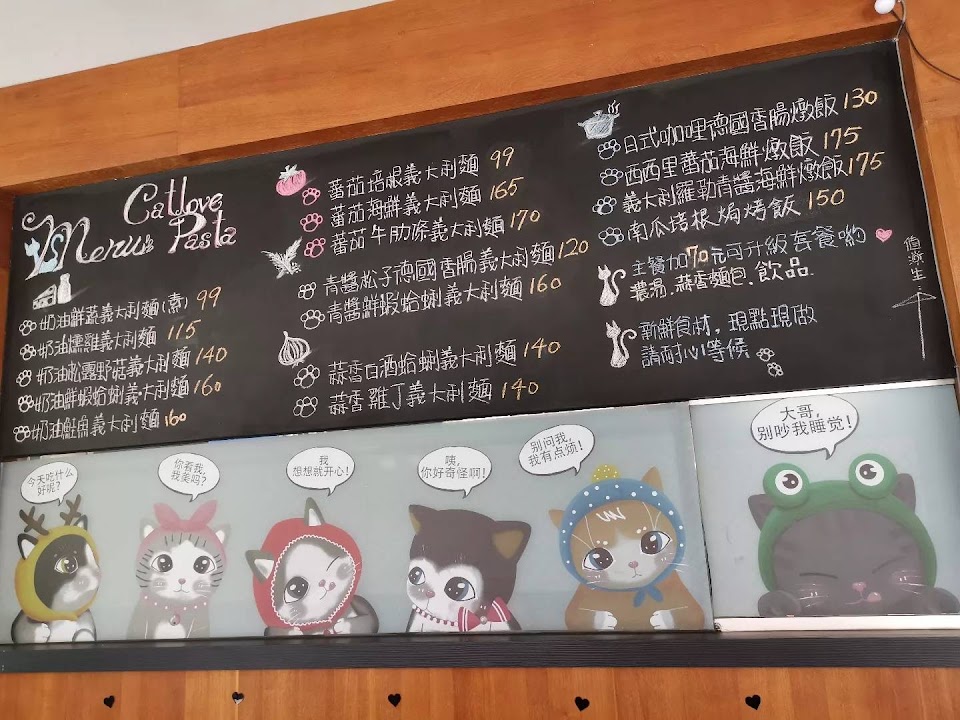 Catlove
Menu's Pasta
奶油鮮蔬義大利麵(素) 99
奶油燻雞義大利麵 115
奶油松露野菇義大利麵 140
奶油鮮蝦蛤蜊義大利麵 160
奶油鮭魚義大利麵 160
蕃茄培根義大利麵 99
蕃茄海鮮義大利麵 165
蕃茄牛肋條義大利麵 170
青醬松子德國香腸義大利麵 120
青醬鮮蝦蛤蜊義大利麵 160
蒜香白酒蛤蜊義大利麵 140
蒜香雞丁義大利麵 140
日式咖哩德國香腸燉飯 130
西西里蕃茄海鮮燉飯 175
義大利羅勒青醬海鮮燉飯 175
南瓜培根焗烤飯 150
主餐加70元可升級套餐喲
濃湯.蒜香麵包.飲品
新鮮食材,現點現做
請耐心等候
今天吃什么
好呢?
你看我,
我美吗?
我
想想就开心!
咦,
你好奇怪啊!
别问我,
我有点烦!
大哥,
别吵我睡觉!